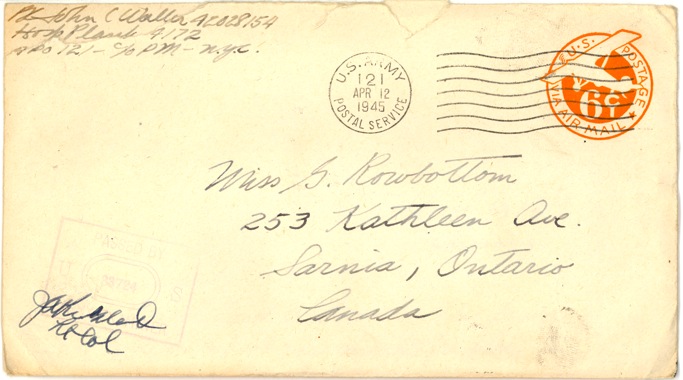 Pvt John C Waller 42028154
Hosp Plant 4172
APO 121 - c/o PM - N.Y.C.
U.S. ARMY
121
APR 12
1945
POSTAL SERVICE
U.S. POSTAGE
6¢
VIA AIR MAIL
Miss G. Rowbottom
253 Kathleen Ave.
Sarnia, Ontario
Canada
PASSED BY